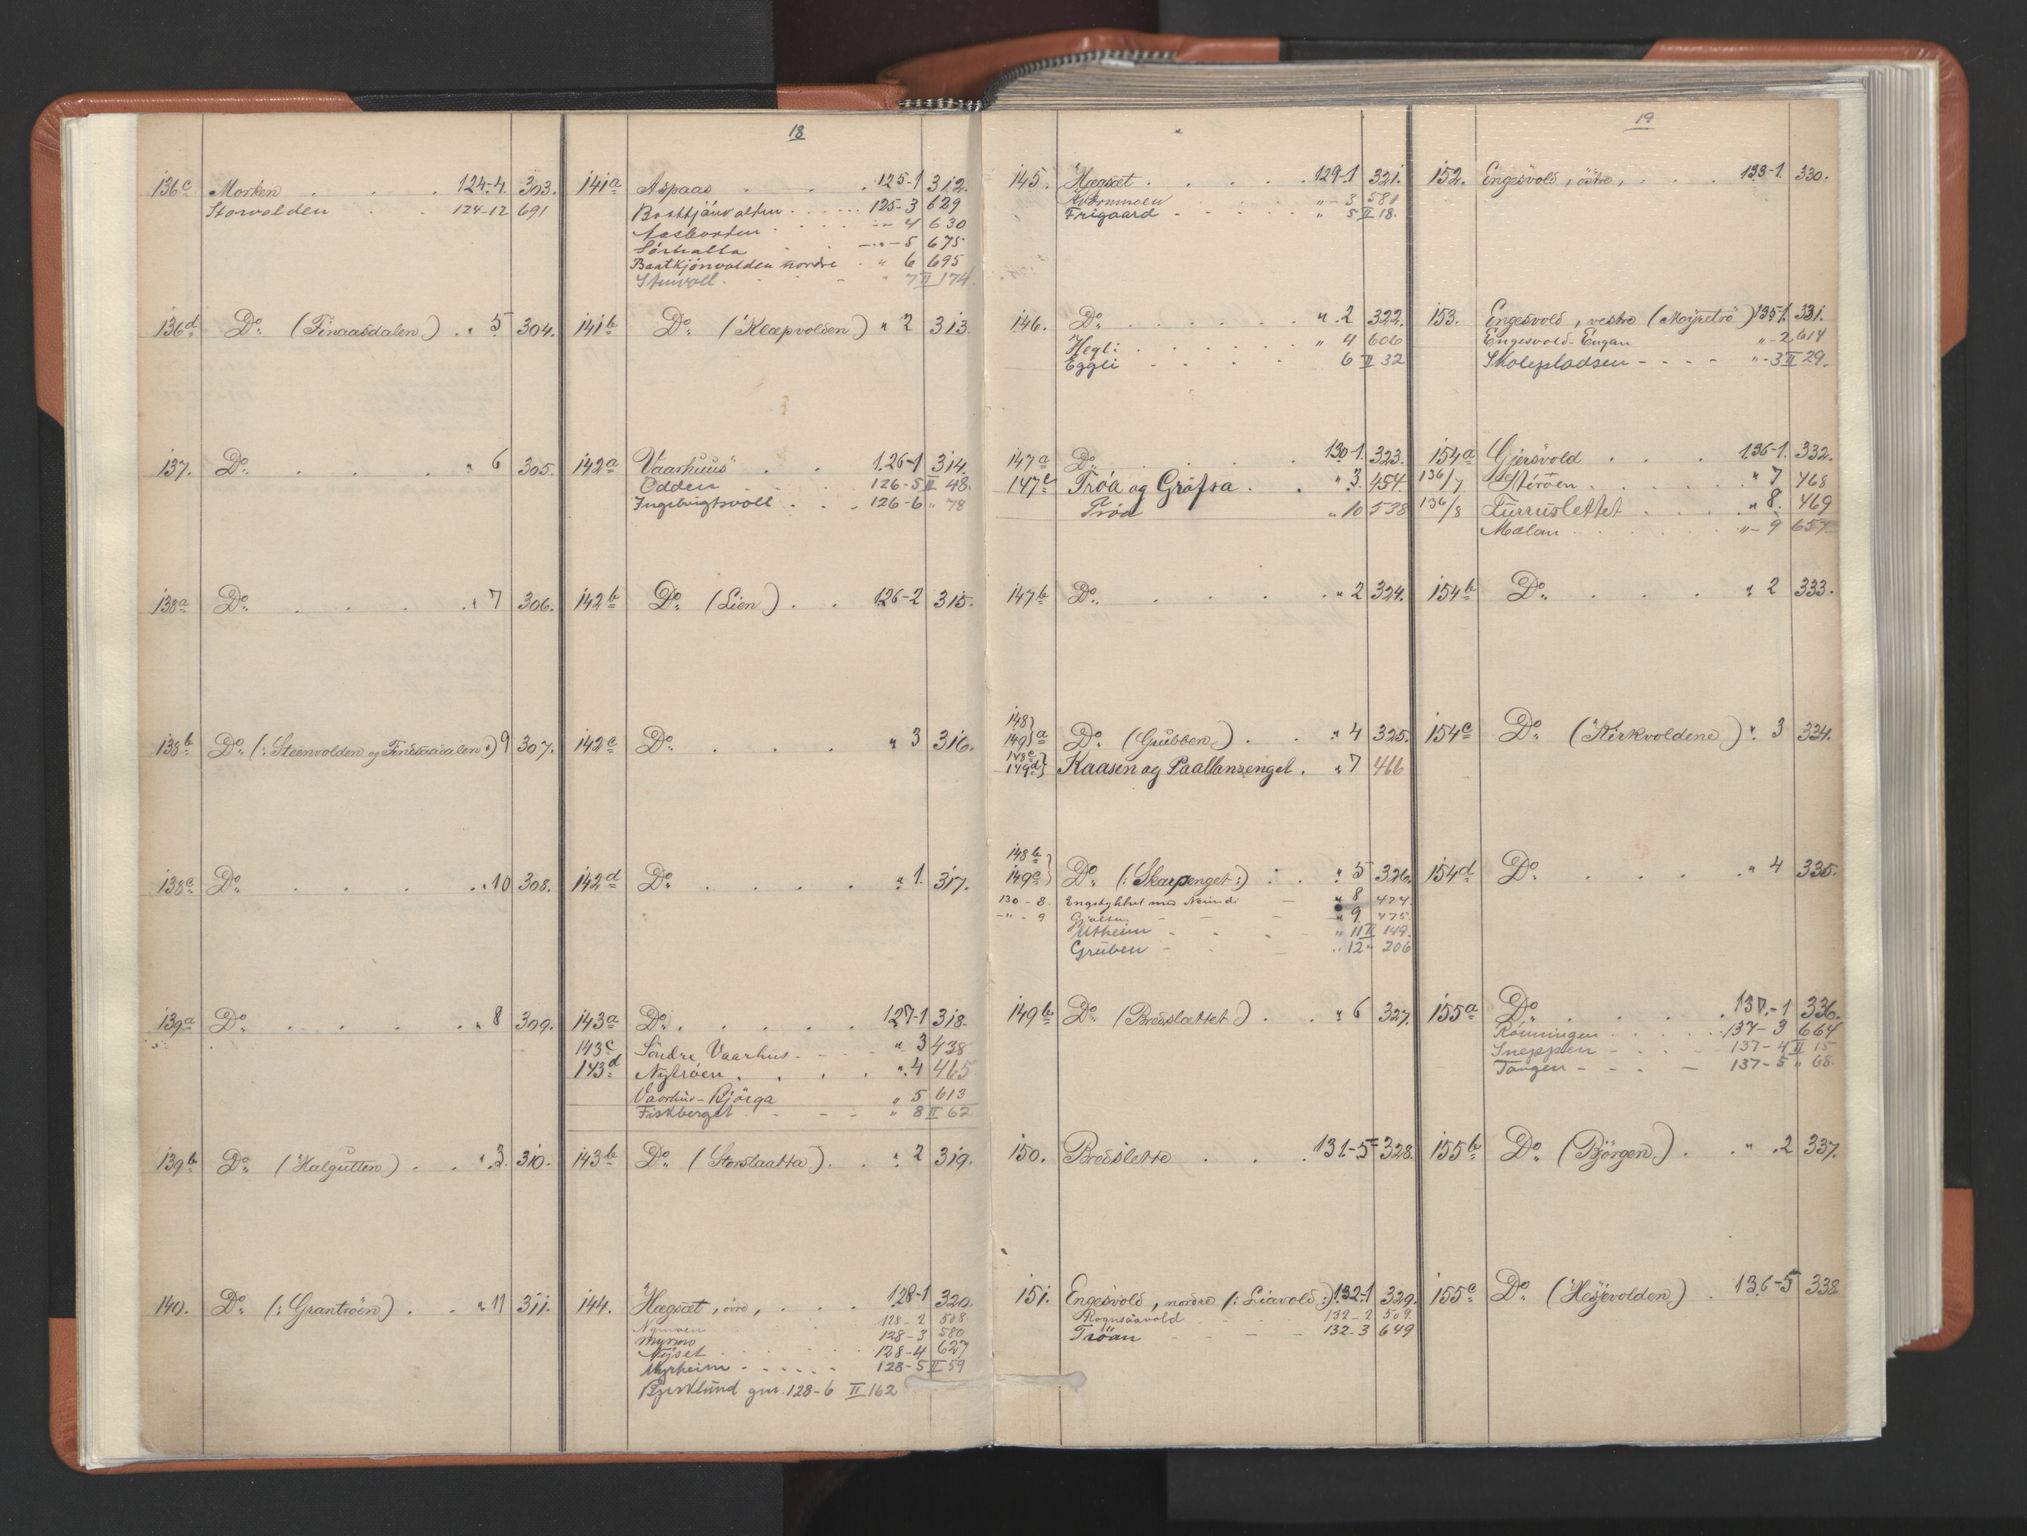 18
136c Morken . . . . 124-4. 303.
Storvolden . . 124-12 691
136d Do. (Finaasdalen) . „ 5 304.
137. Do. . . . . „ 6 305.
138a Do. . . . . „ 7 306.
138b Do. (: Steenvolden og Finaasdalen :) 9 307.
138c Do. . . . . „ 10 308.
139a Do. . . . . „ 8 309.
139b Do. (Halgutten) . . „ 3. 310.
140. Do. (: Grantrøen) . . „ 11 311.
141a Aspaas . . . 125-1 312.
125-3 629
4 630
5 675
Baatkjønvolden nordre . „ 6 695
7 II 174.
141b Do. (Klæpvolden) „ 2 313.
142a Vaarhuus . . 126-1 314.
Odden . . . 126-5 II 48.
Ingebrigtsvoll . . . 126-6 „ 78
142b Do. (Lien) . . 126-2 315.
142c Do. . . . „ 3 316.
142d Do. . . . . „ 1. 317.
143a Do. . . . . 127-1 318.
143c Søndre Vaarhus . . . „ 3 438
143d Nytrøen . . . . „ 4 465
Vaarhus-Bjørga „ 5 613
Fiskberget . . . „ 8 II 62
143b Do. (Storslaatta) . . „ 2 319.
144. Hægsæt, övre, . . . 128-1 320.
Nymoen 128-2 508.
Myrmo 128-3 580
Nyset . . . 128-4 627
Myrheim . . . . . 128-5 II 59
Bjørklund gnr. 128-6 II 162
19
145. Hægsæt . . . . . 129-1 321.
„ - 3 581
Frigaard - - - - - „ 5 II 18.
146. Do. . . . . „ 2 322.
Hegli . . . . . „ 4 606
Eggli . . . 6 II 32
147a Do. . . . . 130-1. 323.
147c Trøa og Gröfsa . . „ 3. 454
Trøa „ 10 538
147b Do. . . . . „ 2 324.
148 149 a Do. (Grubben) . . „ 4 325.
148c 149d Kaasen og Paallansenget . „ 7 466
148b 149c Do. (: Skarpenget :) . . „ 5 326.
130 - 8. Engstykket med „ 8 474
- „ - 9 „ 9 475.
Utheim . . . „ 11 II 149.
Gruben - - - „ 12 „ 206
149b Do. (Bredslættet) . . „ 6 327.
150. Bredslette . . . 131-5 328.
151. Engesvold, nordre (: Liavold :) 132-1 329.
Rognsaavold 132-2 509.
Trøan - - - 132-3 649
152. Engesvold, østre, . . . 133-1. 330.
153. Engesvold, vestre (Moijretrø) 135-1. 331.
Engesvold-Engan „ - 2 614
Skolepladsen - - - - „ - 3 II 29.
154a Gjersvold . . . . 136-1. 332.
136/7 Størøen . . . . . „ 7 468
136/8 Furruslettet . . . . „ 8. 469
Mælan . . . . „ - 9 657
154b Do. . . . . „ 2 333.
154c Do. (Kirkvoldene) „ 3 334.
154d Do. . . . . „ 4 335.
155a Do. . . . . 137.-1 336.
Rønningen . . . 137-3 664
Sneppen - - - - 137-4 II 15
Tangen - - - - 137-5 „ 68.
155b Do. (Bjørgen) . . „ . 2 337.
155c Do. (Høyevolden) . 136-5 338